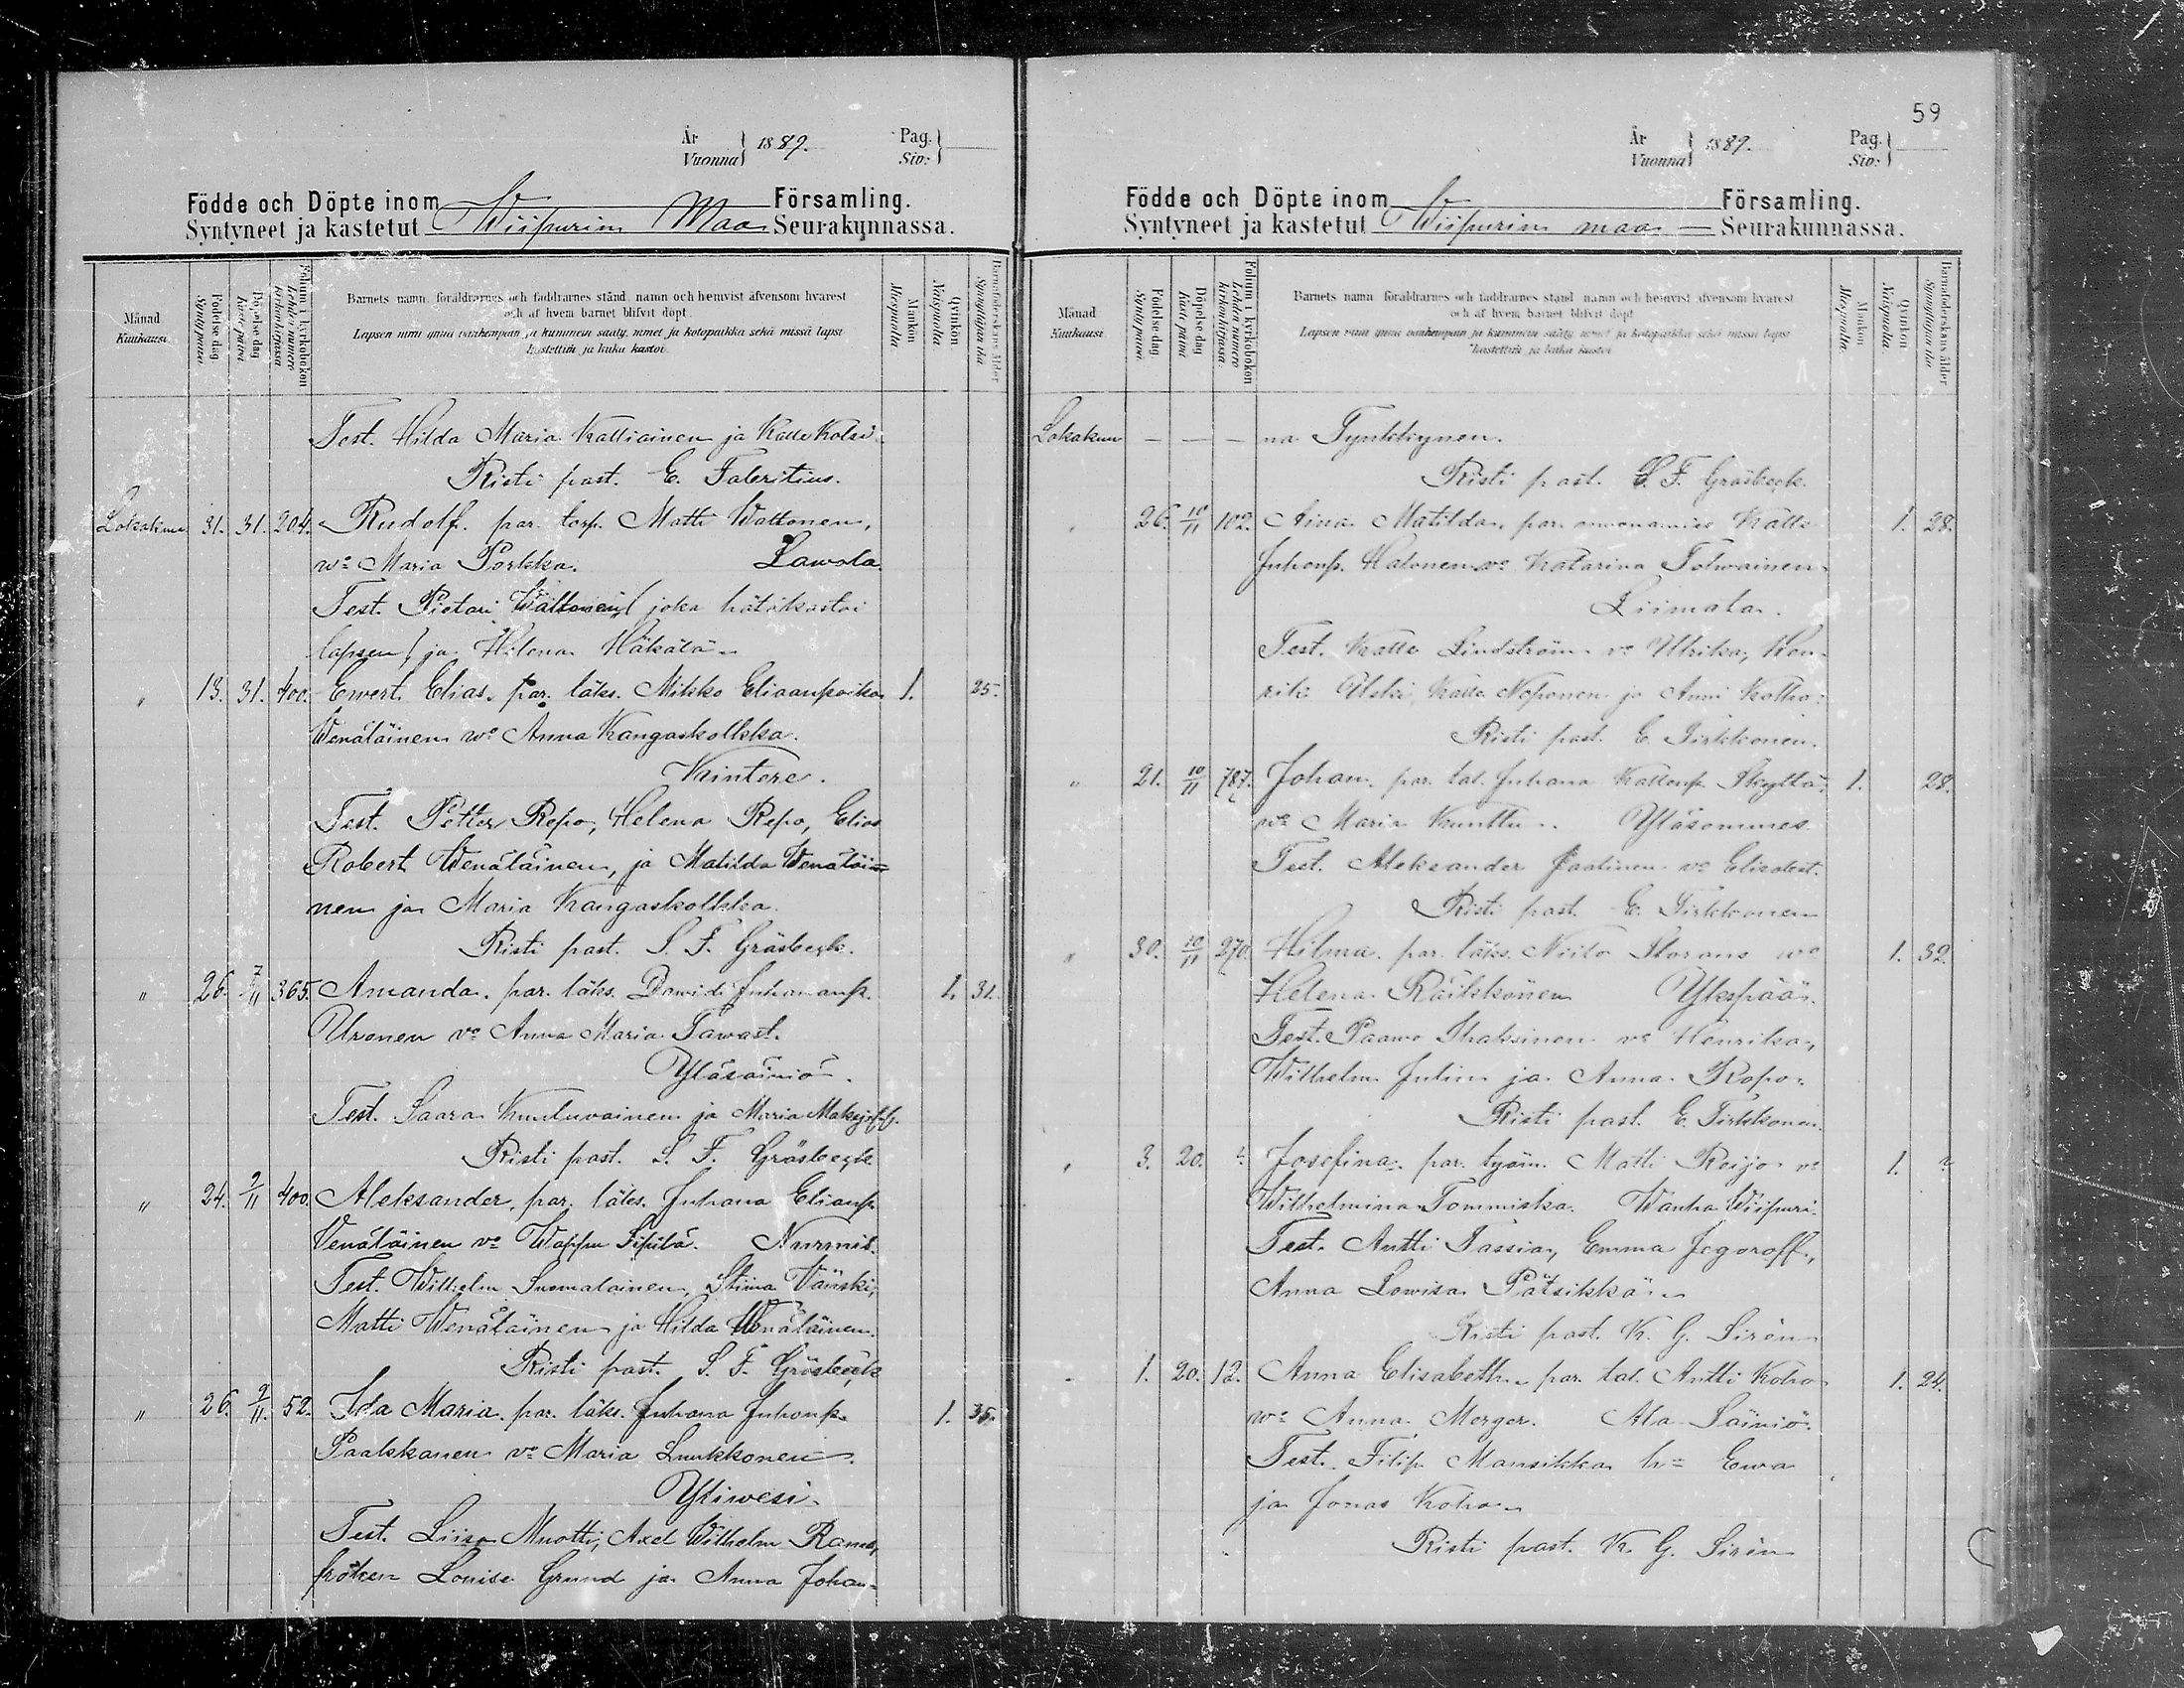 År
Vuonna } 1889. Pag.
Siv: }
Födde och Döpte inom Församling.
Syntyneet ja kastetut Wiipurin Maa Seurakunnassa.
Månad
Kuukausi
Födelse dag
Syntypäivä
Döpelse dag
Kaste päivä
Folium i kyrkoboken
Lehden numero
kirkonkirjassa
Barnets namn, föräldrarnes och faddrarnes stånd, namn och hemvist äfvensom hvarest
och af hvem barnet blifvit döpt
Lapsen nimi ynnä vanhempain ja kummein sääty, nimet ja kotopaikka sekä missä lapsi
kastettiin ja kuka kastoi
Mankön
Miespuolia
Qvinkön
Naispuolia
Barnaföderskans ålder
Synnyttäjän ikä
Test. Hilda Maria Kattiainen ja Kalle Kolsi
Risti past. E. Faleritius.
Lokakuu 31. 31. 204. Rudolf. par. torp. Matti Wattonen,
wo Maria Porkka. Lawola.
Test. Pietari Wattonen ( joka hätäkastoi
lapsen ) ja Helena Häkälä
" 13. 31. 400. Ewert Elias. par. läks. Mikko Eliaanpoika 1. 25.
Wenäläinen wo Anna Kangaskolkka.
Kintere.
Test. Petter Repo, Helena Repo, Elias
Robert Wenäläinen, ja Matilda Wenäläi=
nen ja Maria Kangaskolkka.
Risti past. S. F. Gräsbeck.
" 26. 7/11 365. Amanda. par. läks. Dawidi Juhananp. 1. 31.
Uronen vo Anna Maria Tawast.
Yläsäiniö.
Test. Saara Kuuluvainen ja Maria Maksjeff.
Risti past. S. F. Gräsbeck
" 24. 9/11 400. Aleksander, par. läks. Juhana Elianp.
Venäläinen vo Wappu Sipilä. Nurmis.
Test. Wilhelm Suomalainen, Stiina Vänski,
Matti Wenäläinen ja Hilda Wenäläinen.
Risti past. S. F. Gräsbeck
" 26. 9/11. 52. Ida Maria. par. läks. Juhana Juhonp. 1. 35.
Paakkanen vo Maria Luukkonen.
Yliwesi.
Test. Liisa Muotti, Axel Wilhelm
fröken Louise Grund ja Anna Johan-
59
År
Vuonna } 1889. Pag.
Siv: }
Födde och Döpte inom Församling.
Syntyneet ja kastetut Wiipurin maa Seurakunnassa.
Månad
Kuukausi
Födelse dag
Syntypäivä
Döpelse dag
Kaste päivä
Folium i kyrkoboken
Lehden numero
kirkonkirjassa
Barnets namn, föräldrarnes och faddrarnes stånd, namn och hemvist äfvensom hvarest
och af hvem barnet blifvit döpt
Lapsen nimi ynnä vanhempain ja kummein sääty, nimet ja kotopaikka sekä missä lapsi
kastettiin ja kuka kastoi
Mankön
Miespuolia
Qvinkön
Naispuolia
Barnaföderskans ålder
Synnyttäjän ikä
Lokakuu — — — na Tynkkynen.
Risti past. S. F. Gräsbeck.
" 26. 10/11 102. Aina Matilda, par. Kalle 1. 28.
Juhonp. Halonen vo Katarina Tolwainen
Liimata.
Test. Kalle Lindström vo Ulrika, Hen-
rik Ulski, Kalle Noponen ja Anni Kotho
Risti past. E. Tirkkonen.
" 21. 10/11 787. Johan. par. tal. Juhana Kallonp. Skyttä, 1. 28.
wo Maria Kunttu. Yläsommes.
Test. Aleksander Jaatinen vo Elisabet.
Risti past. E. Tirkkonen
" 30. 10/11 270. Hilma. par. läks. Niilo Storans wo 1. 32.
Helena Räikkönen Ykspää.
Test. Paawo Ihaksinen vo Henrika,
Wilhelm Julin ja Anna Ropo.
Risti past. E. Tirkkonen.
" 3. 20. ? Josefina. par. työm. Matti Reijo vo 1. ?
Wilhelmina Tommiska. Wanha Wiipuri.
Test. Antti Tassia, Emma Jegoroff,
Anna Lowisa Pätsikkä
Risti past. K. G. Sirén
" 1. 20. 12. Anna Elisabeth. par. tal. Antti Koho 1. 24.
wo Anna Merger. Ala Säiniö.
Test. Filip Mansikka h= Eewa
ja Jonas Koho
Risti past. K. G. Sirén